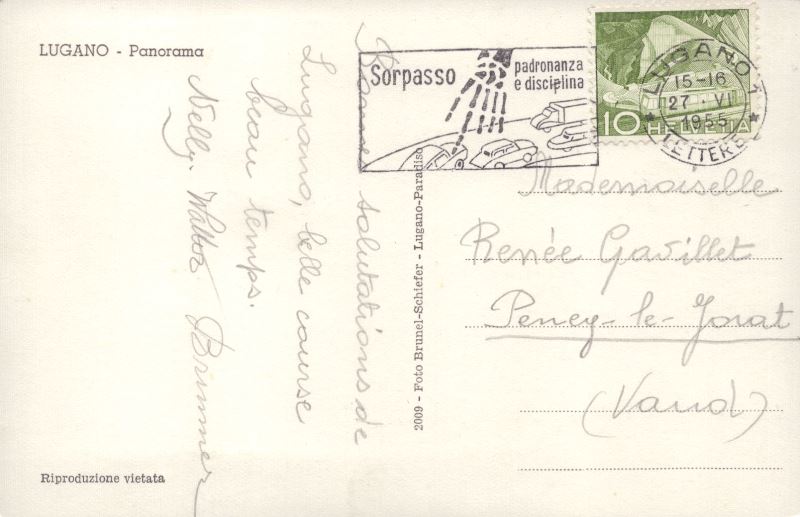 LUGANO - Panorama
Bonnes salutations de
Lugano, belle course
beau temps.
Nelly Brunner
Riproduzione vietata
2009 - Foto Brunel-Schiefer - Lugano-Paradiso
Sorpasso
padronanza
e disciplina
10 HELVETIA
LUGANO 1
15-16
27 · VI
1955
LETTERE
Mademoiselle
Renée Gavillet
Peney-le-Jorat
(Vaud)